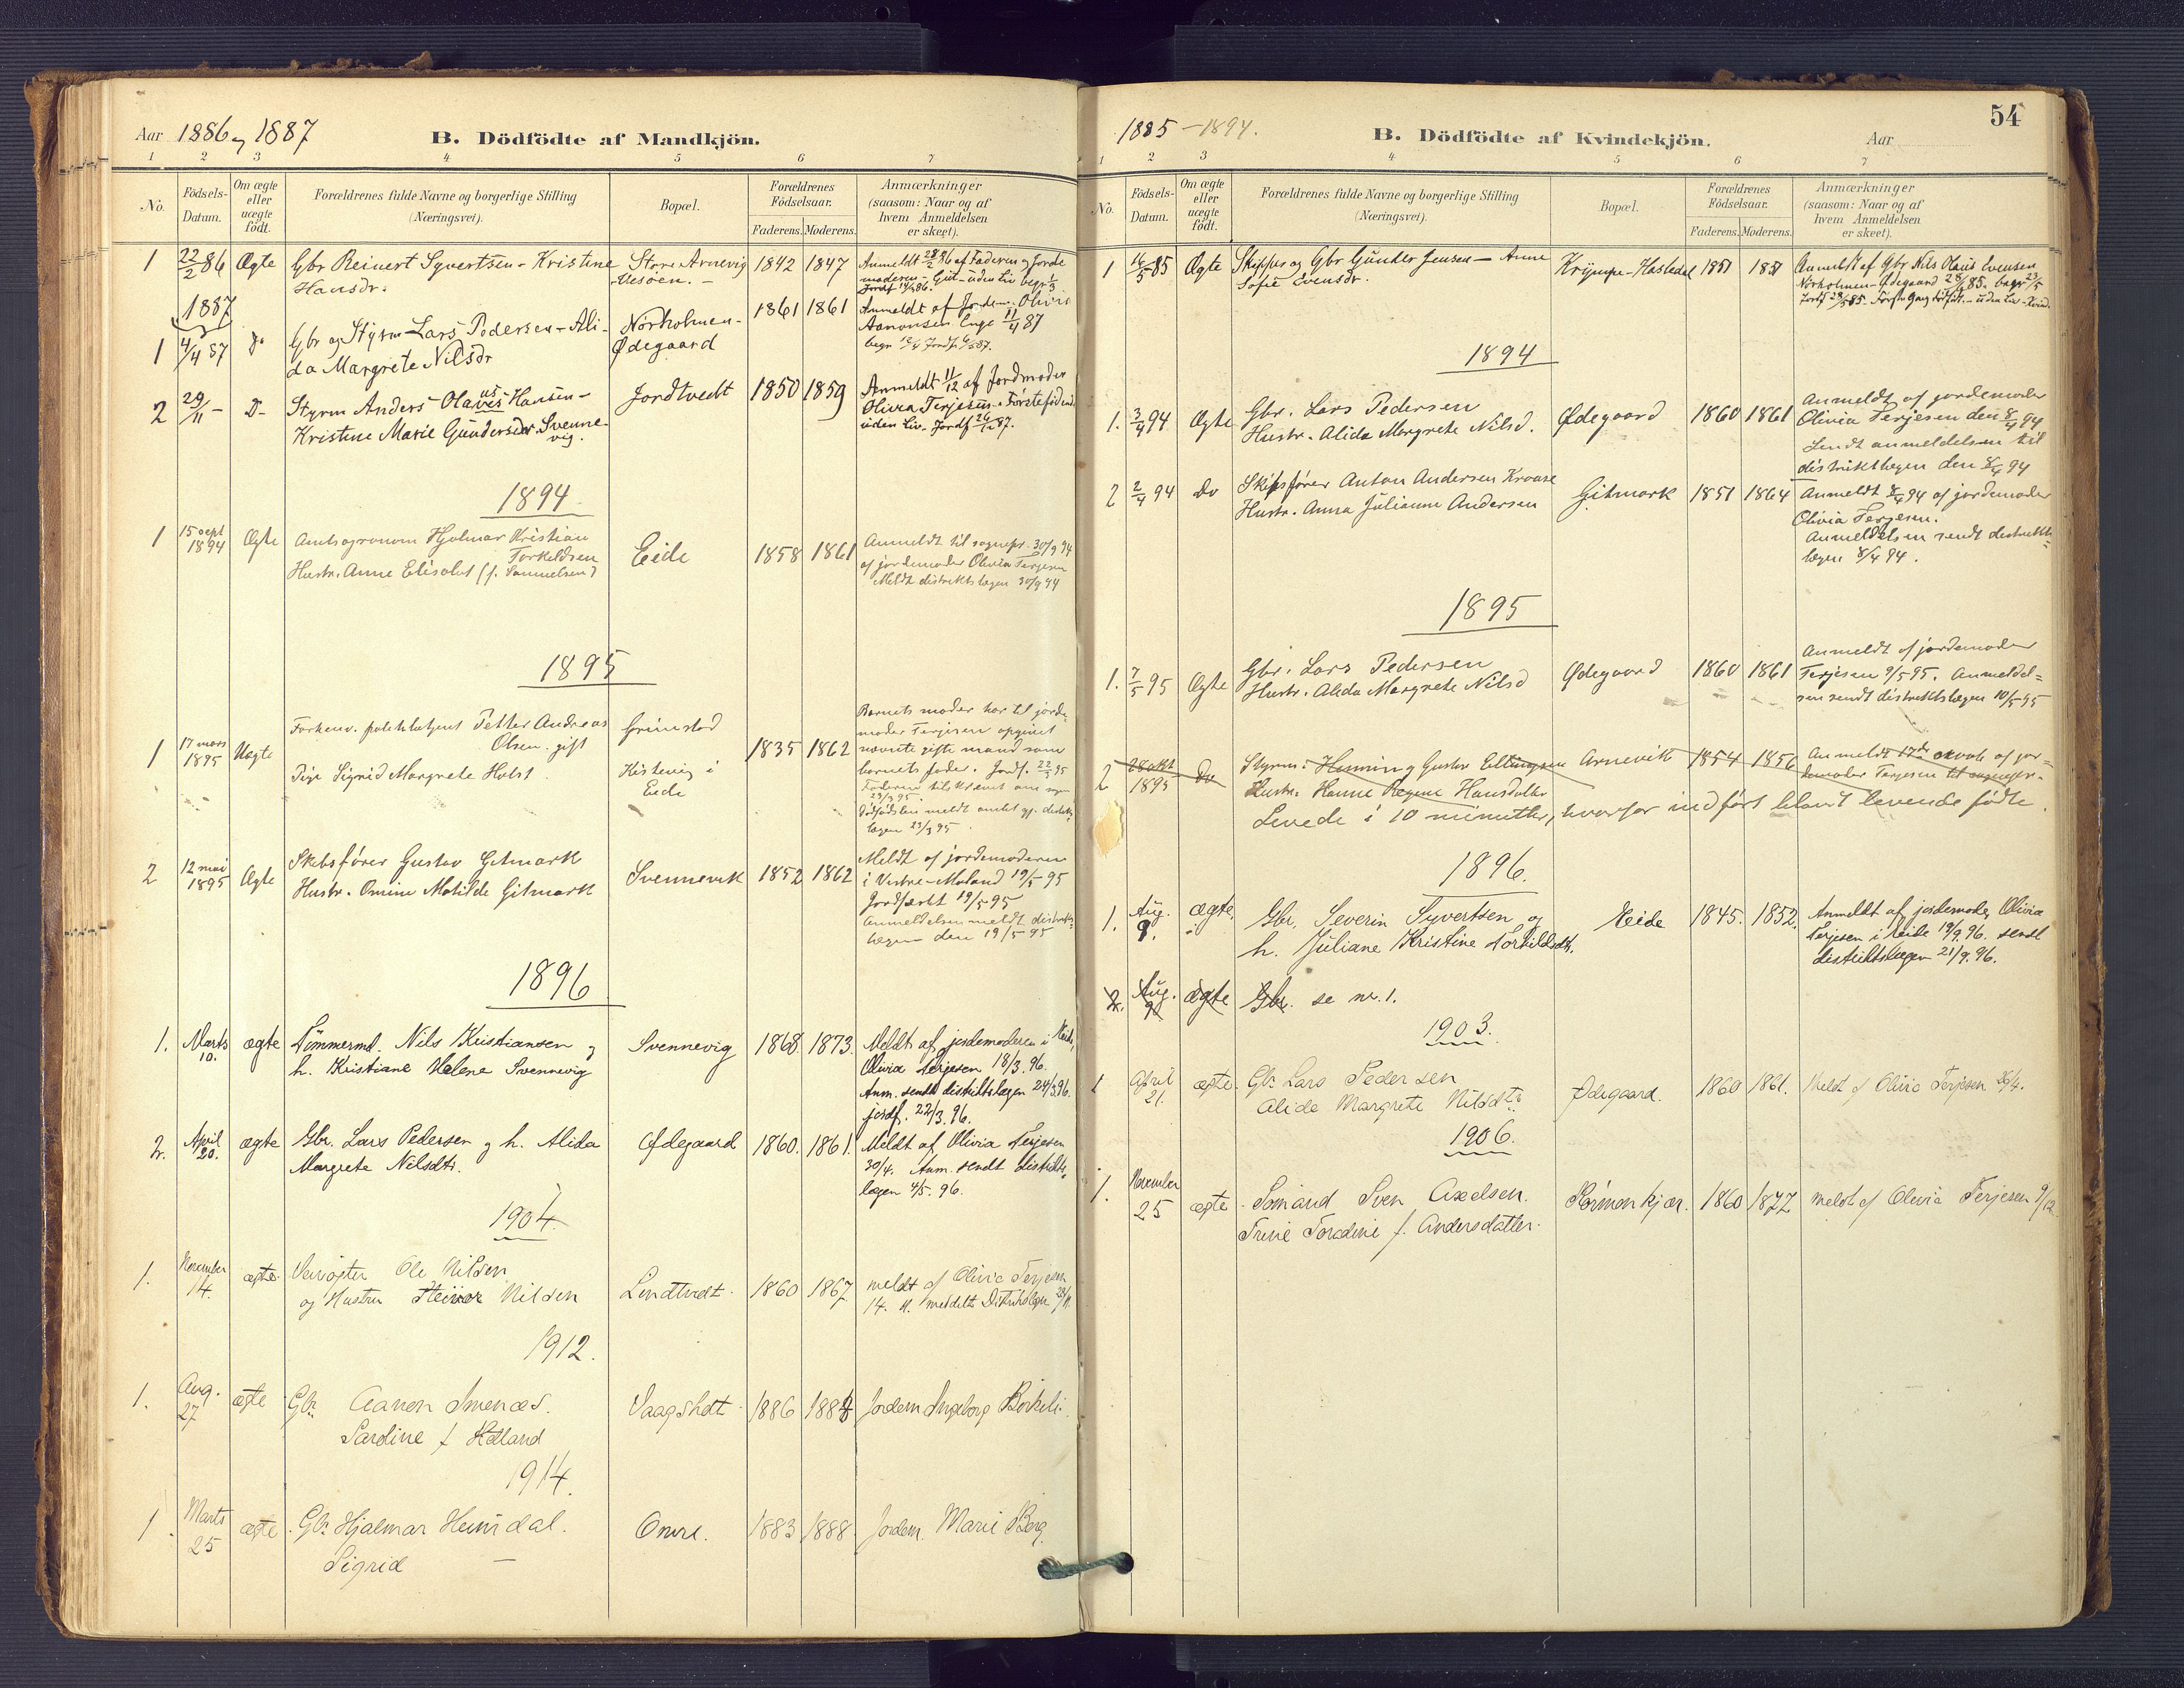 Aar 1886 og 1887
B. Dödfödte af Mandkjön.
1 2 3 4 5 6 7
No.
Födsels-Datum.
Om ægte eller uægte födt.
Forældrenes fulde Navne og borgerlige Stilling
(Næringsvei).
Bopæl.
Forældrenes Födselsaar.
Faderens. Moderens.
Anmærkninger
(saasom: Naar og af
hvem Anmeldelsen
er skeet).
1 22/2 86 Ægte Gbr Reinert Syvertsen - Kristine Store Arnevig 1842 1847 Anmeldt 28/2 86 af Faderen og Jorde
Hansdr.
moderen - Gut - uden Liv begr
1887
1 4/4 87 Do Gbr og Styrm Lars Pedersen - Ali- Nørholmen- 1861 1861 Anmeldt af Jordem. Olivia
da Margrete Nilsdr Ødegaard
Aanonsen Enge 11/4 87
2 29/11 - D- Styrm Anders Olaus Hansen - Jordtvedt 1850 1859 Anmeldt 11/12 af Jordmoder
Kristine Marie Gundersdr Svenne-
vig.
Olivia Terjesen. Førstefødende
uden Liv. Jordf
1894
1 15 sept 1894 Ægte Amtsagronom Hjalmar Kristian Eide 1858 1861 Anmeldt til sognepr. 30/9 94
Torkeldsen
Hustr. Anne Elisabet (f. Samuelsen)
af jordemoder Olivia Terjesen
Meldt distriktslægen 30/9 94
1895
1 17 mars 1895 Uægte Forhenv. politibetjent Petter Andreas Grimstad 1835 1862 Barnets moder har til jorde-
Olsen. gift
Pige Sigrid Margrete Holst. Kistevig i
Eide
moder Terjesen opgivet
nævnte gifte mand som
barnets fader. Jordf. 22/3 95
23/3 95.
lægen 23/3 95.
2 12 mai 1895 Ægte Skibsfører Gustav Gitmark Svennevik 1852 1862 Meldt af jordemoderen
Hustr. Omine Matilde Gitmark
i Vestre-Moland 19/5 95
Jordfæstet 19/5 95
Anmeldelsen meldt distrikts-
lægen den 19/5 95
1896
1. Marts 10. ægte Tømmermd. Nils Kristiansen og Svennevig 1868. 1873. Meldt af jordemoderen i Eide,
h. Kristiane Helene Svennevig
Olivia Terjesen 18/3. 96.
Anm. sendt distriktslægen 24/3.96.
jordf. 22/3. 96.
2. April 20. ægte Gbr. Lars Pedersen og h. Alida Ødegaard 1860. 1861. Meldt af Olivia Terjesen
Margrete Nilsdtr.
30/4. Anm. sendt distrikts-
lægen 4/5. 96.
1904.
1. November 14. ægte. Ole Nilsen Lindtvedt. 1860 1867 meldt af Olivia Terjesen
og Hustru Nilsen
14. 11.
1912.
1. Aug. 27 ægte Gbr. Aanon Smenæs. 1886 1884 Jordem Ingeborg
Sardine f
1914.
1. Marts 25 ægte. Gbr Hjalmar Heimdal. Omre. 1883 1888. Jordem. Marie Berg.
Sigrid —
54
1885-1894.
B. Dödfödte af Kvindekjön.
Aar
1 2 3 4 5 6 7
No.
Födsels-Datum.
Om ægte eller uægte födt.
Forældrenes fulde Navne og borgerlige Stilling
(Næringsvei).
Bopæl.
Forældrenes Födselsaar.
Faderens. Moderens.
Anmærkninger
(saasom: Naar og af
hvem Anmeldelsen
er skeet).
1 16/5 85 Ægte Skipper og Gbr Gunder Jensen - Anne 1851 1851 Anmeldt af Gbr Nils Olaus Evensen
Sofie Evensdr.
Nørholmen - Ødegaard
1894
1. 3/4 94 Ægte Gbr. Lars Pedersen Ødegaard 1860 1861 Anmeldt af jordemoder
Hustr. Alida Margrete Nilsd.
Olivia Terjesen den 8/4 94
Sendt anmeldelsen til
distriktlægen den 8/4 94
2 2/4 94 Do Skibsfører Anton Andersen Gitmark 1851 1864 Anmeldt 8/4 94 af jordemoder
Hustr. Anna Julianne Andersen
Olivia Terjesen.
Anmeldelsen sendt distrikts-
lægen 8/4 94.
1895
1. 7/5 95 Ægte Gbr. Lars Pedersen Ødegaard 1860 1861 Anmeldt af jordemoder
Hustr. Alida Margrete Nilsd
Terjesen 9/5 95. Anmeldel-
sen sendt distriktslægen 10/5 95
2 28 okt 1895 Do Styrm. Henning Gustav Ellingsen Arnevik 1854 1856 Anmeldt af jor-
Hustr. Hanne Regine Hansdatter
demoder Terjesen
Levede i 10 minutter, hvorfor indført blandt levende fødte.
1896.
1. Aug. 9. ægte. Gbr. Severin Syvertsen og Eide 1845. 1852. Anmeldt af jordemoder Olivia
h. Juliane Kristine Torkildsdtr.
Terjesen i Eide 19/9. 96. sendt
distriktslægen 21/9. 96.
2. Aug. 9 ægte Gbr. se nr. 1.
1903.
1 April 21. ægte. Gbr Lars Pedersen Ødegaard. 1860 1861. Meldt af Olivia Terjesen 26/4.
Alide Margrete Nilsdtr
1906.
1. November 25 ægte Sømand Sven Axelsen. 1860 1877 meldt af Olivia Terjesen 9/12
Trine Tordine f. Andersdatter.